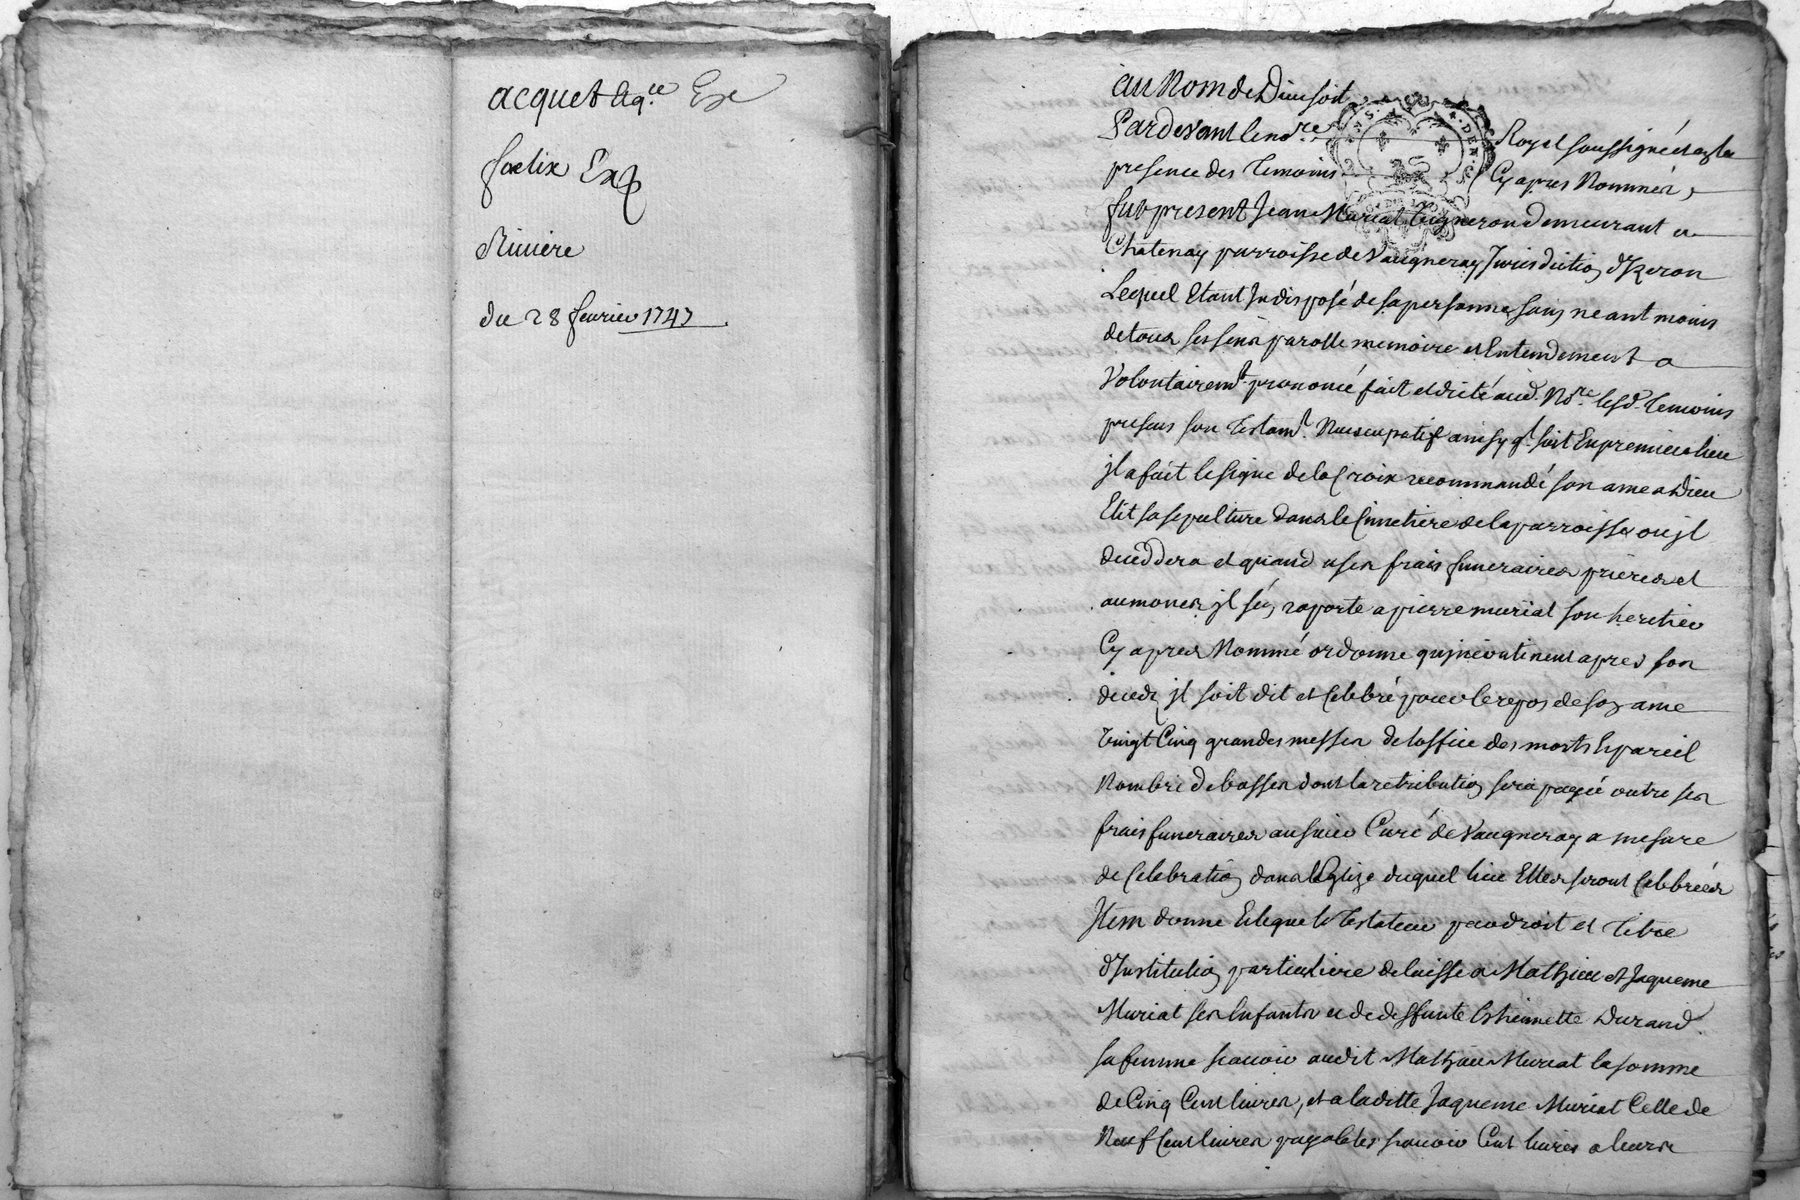 acquet
foelix
Riviere
du 28 fevrier 1747
au Nom de Dieu soit
Pardevant le no.re Royal soussigné et en la
presence des Temoins Cy apres Nommés,
fut present Jean Muriat Vigneron demeurant a
Chatenay parroisse de Vaugneray Jurisdiction d'Izeron
Lequel Etant Indisposé de sa personne sain neantmoins
de tous ses sens parolle memoire et Entendement a
Volontairem.t prononcé fait et dicté aud. No.re lesd. Temoins
presens son Testam.t Nuncupatif ainsy q.l suit En premier lieu
jl a fait le signe de la Croix recommandé son ame a Dieu
Elit sa sepulture dans le Cimetiere de la parroisse ou jl
deceddera et quand a ses frais funeraires prieres et
aumones jl s'en raporte a pierre muriat son heritier
Cy apres Nommé ordonne qu'jncontinent apres son
deceds jl soit dit et Celebré pour le repos de son ame
Vingt Cinq grandes messes de l'office des morts Et pareil
Nombre de basses dont la retribution sera payée outre ses
frais funeraires au sieur Curé de Vaugneray a mesure
de Celebration dans l'Eglize duquel lieu Elles seront Celebrées
Item donne Et legue le Testateur par droit et Titre
d'Institution particuliere delaisse a Mathieu et Jaqueme
Muriat ses Enfants et de deffunte Estiennette Durand
sa femme scavoir audit Mathieu Muriat la somme
de Cinq Cent livres, et a laditte Jaqueme Muriat Celle de
Neuf Cent livres payables scavoir Cent livres a leurs